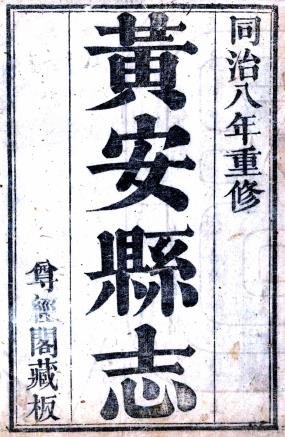 同治八年重修
黃安縣志
尊經閣藏板